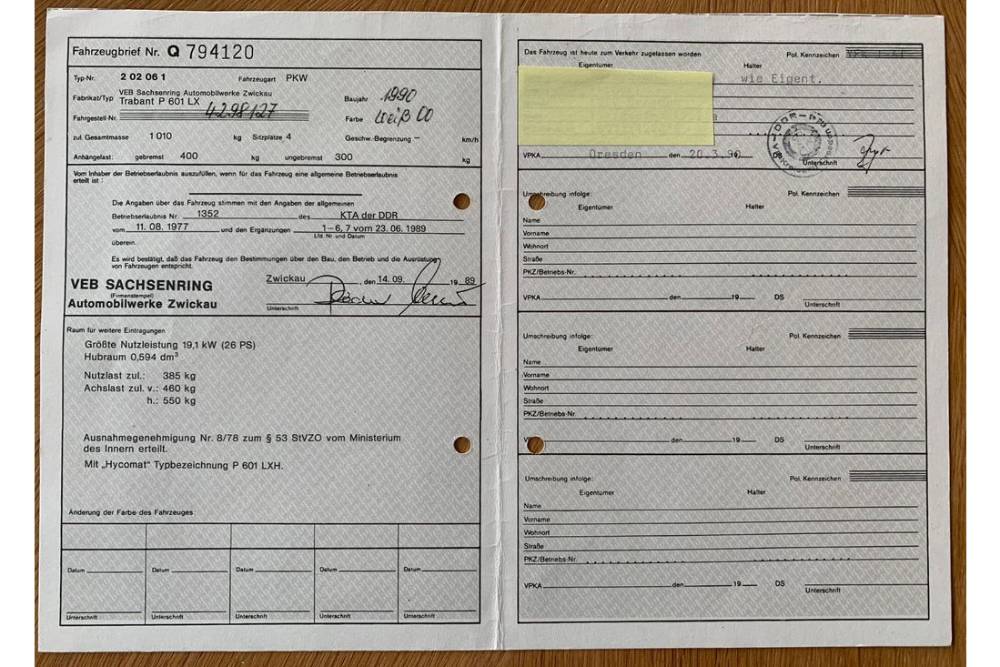 Fahrzeugbrief Nr. Q 794120
Typ-Nr. 2 02 06 1 Fahrzeugart PKW
Fabrikat/Typ VEB Sachsenring Automobilwerke Zwickau
Trabant P 601 LX Baujahr 1990
Fahrgestell-Nr. 4298127 Farbe weiß 00
zul. Gesamtmasse 1010 kg Sitzplätze 4 Geschw.-Begrenzung – km/h
Anhängelast: gebremst 400 kg ungebremst 300 kg
Vom Inhaber der Betriebserlaubnis auszufüllen, wenn für das Fahrzeug eine allgemeine Betriebserlaubnis
erteilt ist:
Die Angaben über das Fahrzeug stimmen mit den Angaben der allgemeinen
Betriebserlaubnis Nr. 1352 des KTA der DDR
vom 11. 08. 1977 und den Ergänzungen 1–6, 7 vom 23. 06. 1989
Lfd. Nr. und Datum
überein.
Es wird bestätigt, daß das Fahrzeug den Bestimmungen über den Bau, den Betrieb und die Ausrüstung
von Fahrzeugen entspricht.
VEB SACHSENRING
(Firmenstempel)
Automobilwerke Zwickau
Zwickau, den 14.09. 19 89
Unterschrift
Raum für weitere Eintragungen
Größte Nutzleistung 19,1 kW (26 PS)
Hubraum 0,594 dm³
Nutzlast zul.: 385 kg
Achslast zul. v.: 460 kg
h.: 550 kg
Ausnahmegenehmigung Nr. 8/78 zum § 53 StVZO vom Ministerium
des Innern erteilt.
Mit „Hycomat“ Typbezeichnung P 601 LXH.
Änderung der Farbe des Fahrzeuges:
Datum Datum Datum Datum Datum
Unterschrift Unterschrift Unterschrift Unterschrift Unterschrift
Das Fahrzeug ist heute zum Verkehr zugelassen worden Pol. Kennzeichen
Eigentümer Halter
wie Eigent.
VPKA Dresden den 20.3.90 19
Unterschrift
Umschreibung infolge: Pol. Kennzeichen
Eigentümer Halter
Name
Vorname
Wohnort
Straße
PKZ/Betriebs-Nr.
VPKA den 19 DS
Unterschrift
Umschreibung infolge: Pol. Kennzeichen
Eigentümer Halter
Name
Vorname
Wohnort
Straße
PKZ/Betriebs-Nr.
den 19 DS
Unterschrift
Umschreibung infolge: Pol. Kennzeichen
Eigentümer Halter
Name
Vorname
Wohnort
Straße
PKZ/Betriebs-Nr.
VPKA den 19 DS
Unterschrift